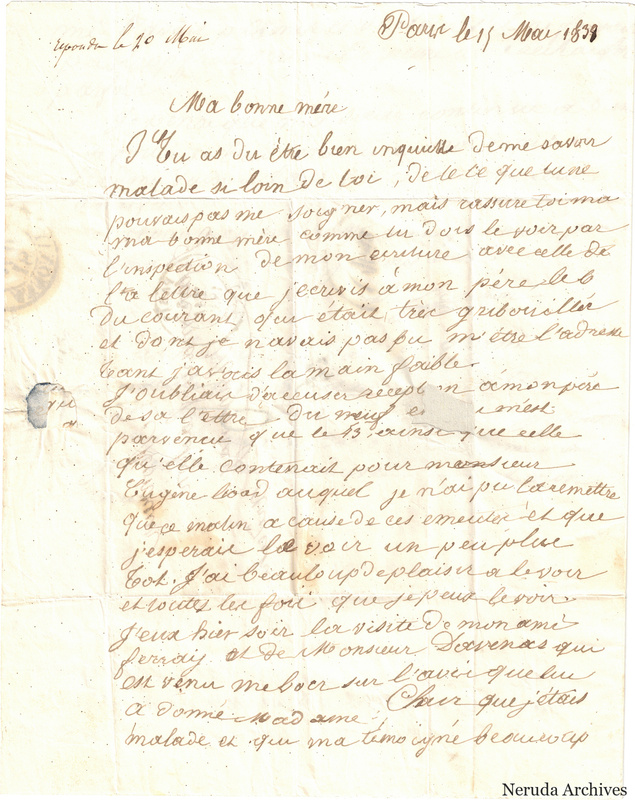 repondu le 20 Mai
Paris le 15 Mai 1839
Ma bonne mére
Tu as du être bien inquiette de me savoir
malade si loin de toi, de ce que tu ne
pouvais pas me soigner, mais rassure toi ma
ma bonne mère comme tu dois le voir par
l'inspection de mon ecriture avec celle de
la lettre que j'ecrivis à mon père le 6
du courant qui était très gribouillée
et dont je n'avais pas pu m'être l'adresse
tant j'avais la main faible.
J'oubliais d'accuser recept n à mon père
de sa lettre du neuf m'est
parvenu que le 13 ainsi que celle
qu'elle contenait pour monsieur
Eugène auquel je n'ai pu la remettre
que ce matin a cause de ces emeutes et que
j'esperais le voir un peu plus
tot. J'ai beaucoup de plaisir a le voir
et toutes les fois que je peux le voir.
J'eux hier soir la visite de mon ami
ferray et de Monsieur Davenas qui
est venu me voir sur l'avis que lui
a donné Madame Chair que j'étais
malade et qui m'a temoigné beaucoup
Neruda Archives